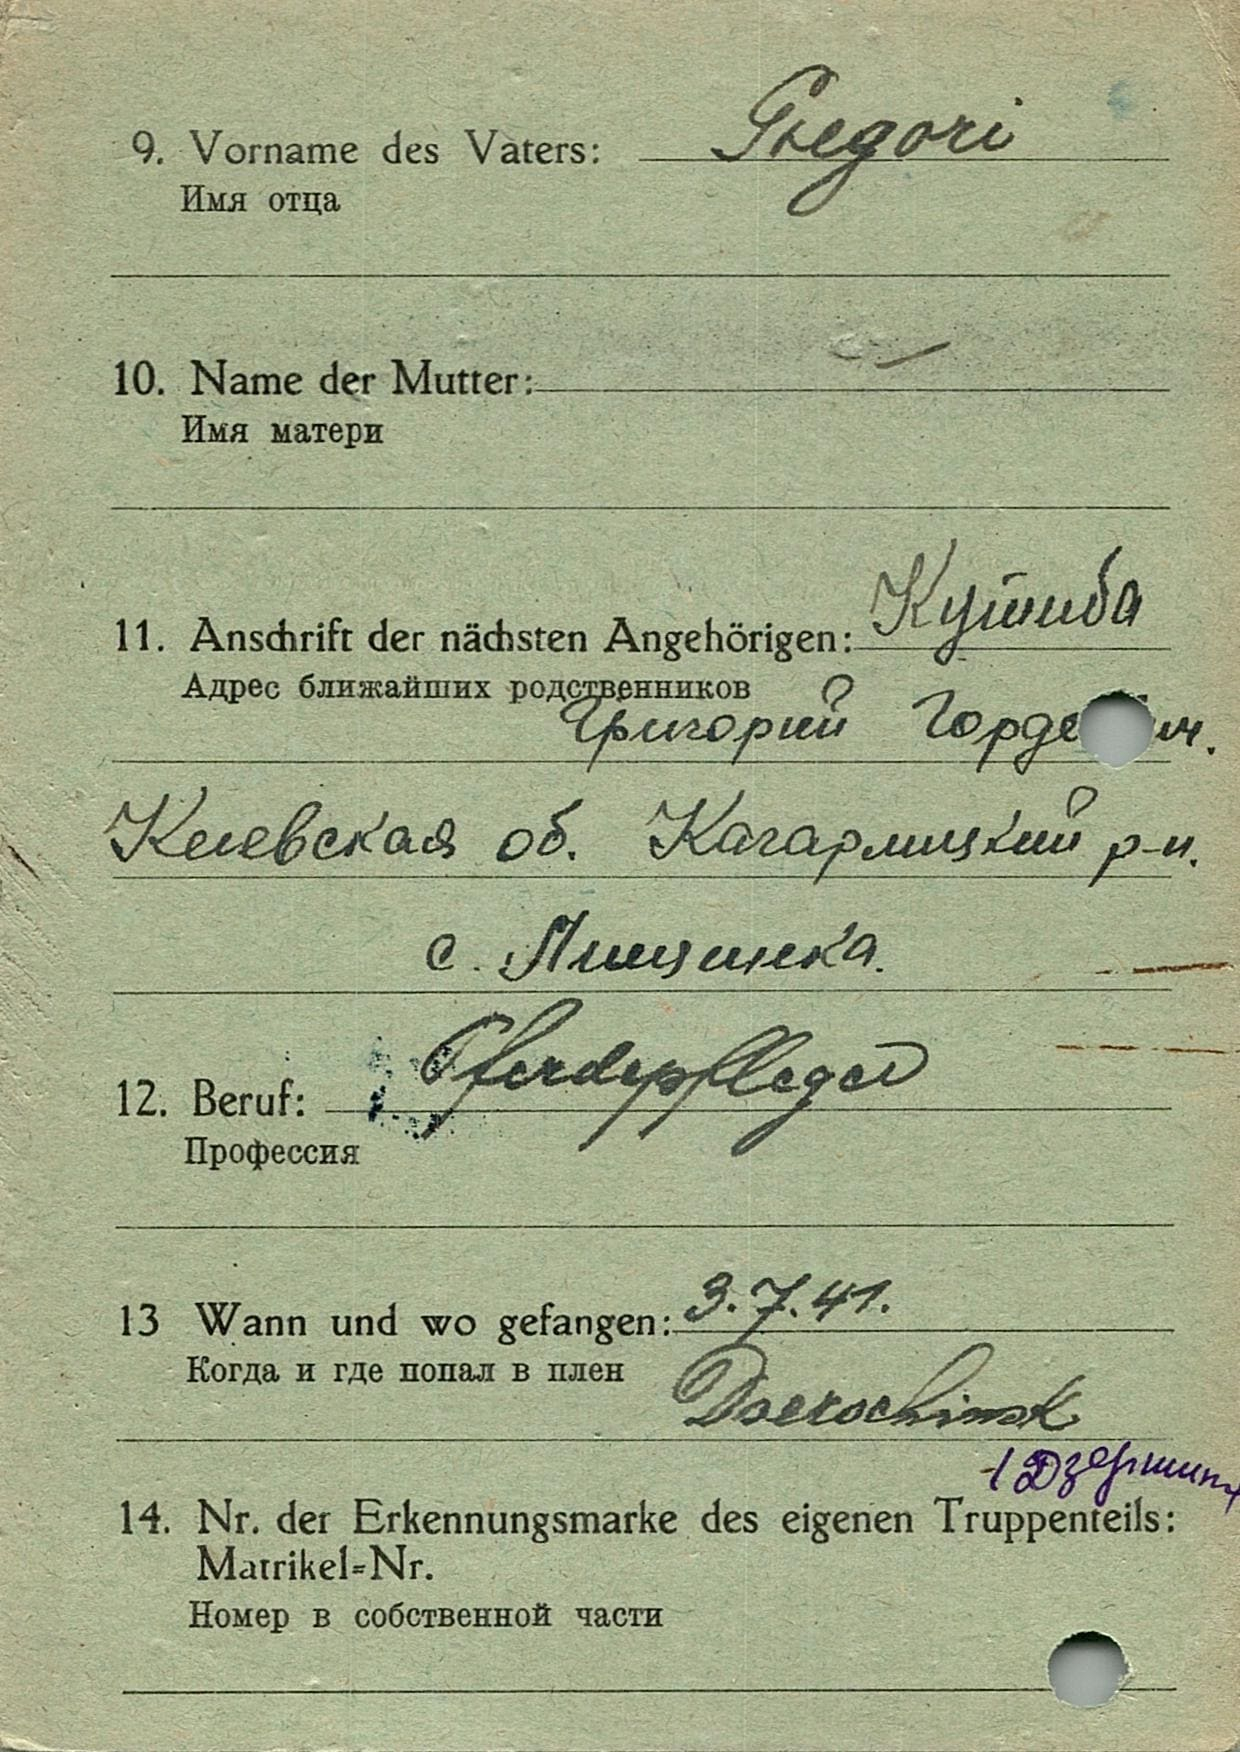 9. Vorname des Vaters: Gregori
Имя отца
10. Name der Mutter: —
Имя матери
11. Anschrift der nächsten Angehörigen: Кутиба
Адрес ближайших родственников
Григорий Горде ич.
Киевская об. Кагарлицкий р-н.
с. Липцинка.
12. Beruf: Pferdepfleger
Профессия
13 Wann und wo gefangen: 3.7.41.
Когда и где попал в плен
Dserochinsk
(Дзержинск
14. Nr. der Erkennungsmarke des eigenen Truppenteils:
Matrikel=Nr.
Номер в собственной части